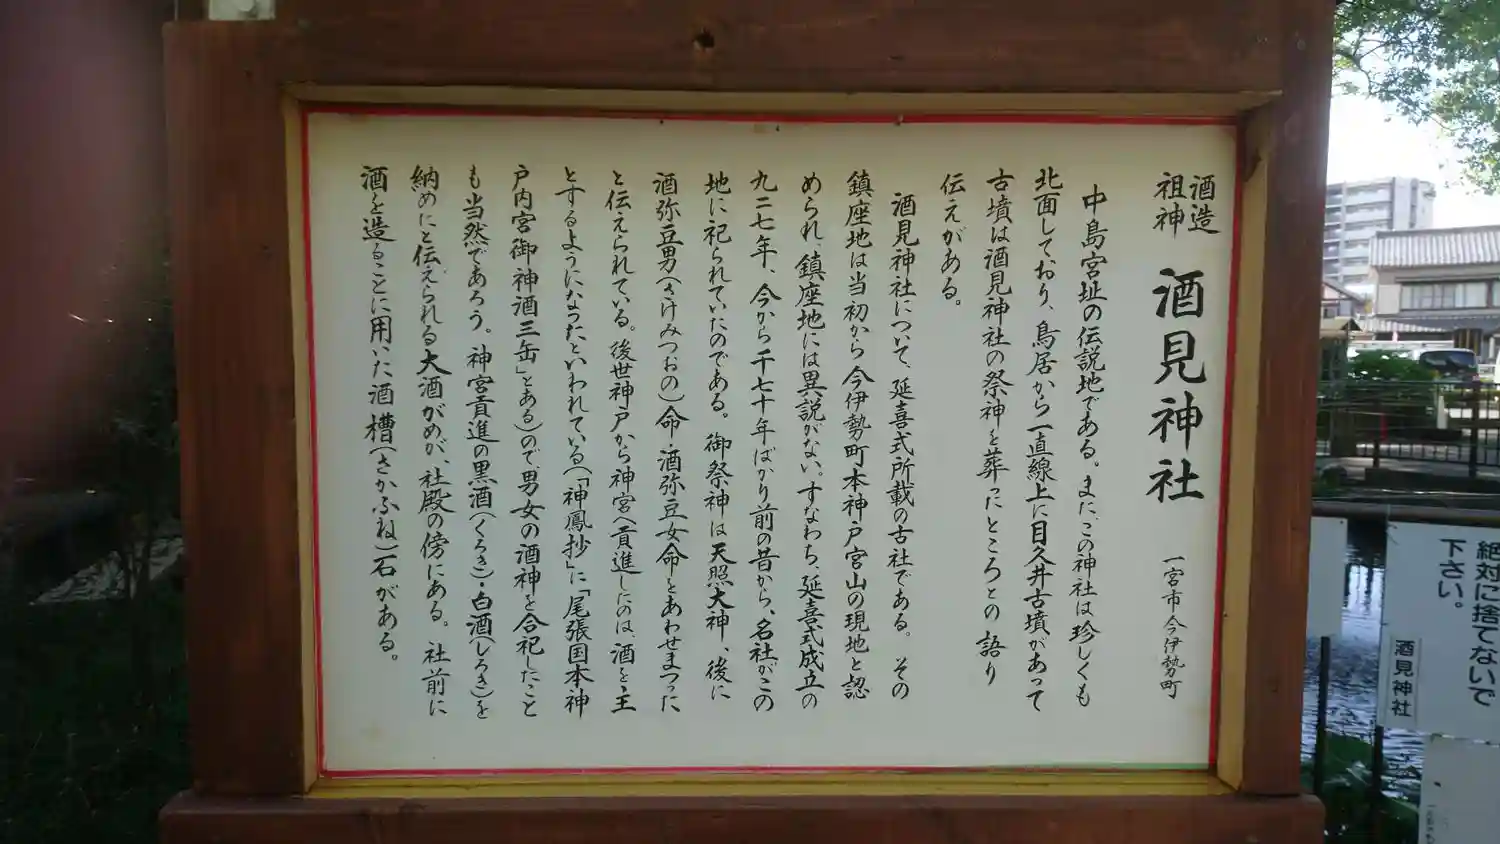 酒造
祖神
酒見神社
一宮市今伊勢町
中島宮址の伝説地である。また、この神社は珍しくも
北面しており、鳥居から一直線上に目久井古墳があって
古墳は酒見神社の祭神を葬ったところとの語り
伝えがある。
酒見神社について、延喜式所載の古社である。その
鎮座地は当初から今伊勢町本神戸宮山の現地と認
められ、鎮座地には異説がない。すなわち、延喜式成立の
九二七年、今から千七十年ばかり前の昔から、名社がこの
地に祀られていたのである。御祭神は天照大神、後に
酒弥豆男(さけみつおの)命・酒弥豆女命とあわせまつった
と伝えられている。後世神戸から神宮へ貢進したのは、酒を主
とするようになったといわれている(「神鳳抄」に「尾張国本神
戸内宮御神酒三缶」とある)ので男女の酒神を合祀したこと
も当然であろう。神宮貢進の黒酒(くろき)・白酒(しろき)を
納めたと伝えられる大酒がめが、社殿の傍にある。社前に
酒を造ることに用いた酒槽(さかふね)石がある。
絶対に捨てないで
下さい。
酒見神社